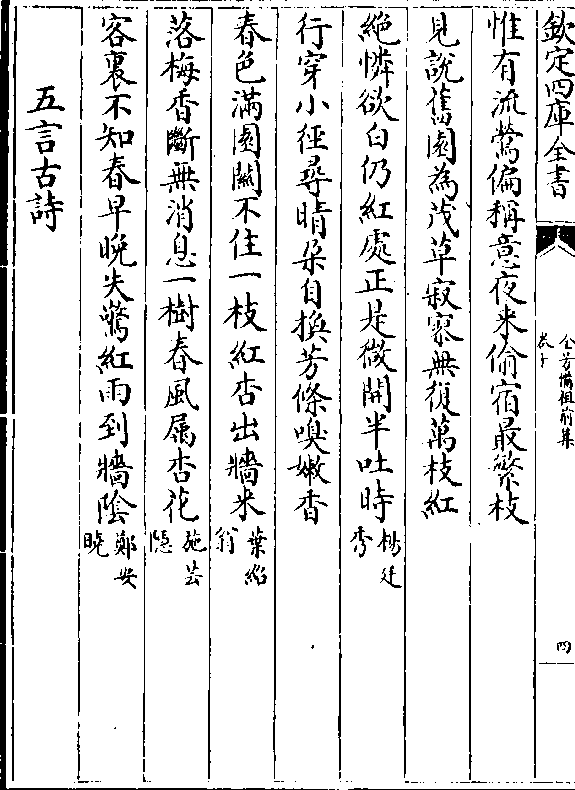 欽定四庫全書
全芳備祖前集
卷十
四
惟有流鶯偏稱意夜来偷宿最繁枝
見說舊園為茂草寂寥無復萬枝紅
絶憐欲白仍紅處正是微開半吐時楊廷秀
行穿小徑尋晴朶自換芳條嗅嫩香
春色滿園關不住一枝紅杏出牆来葉紹翁
落梅香斷無消息一樹春風屬杏花施芸隱
客裏不知春早晚失驚紅雨到牆陰鄭安晚
五言古詩